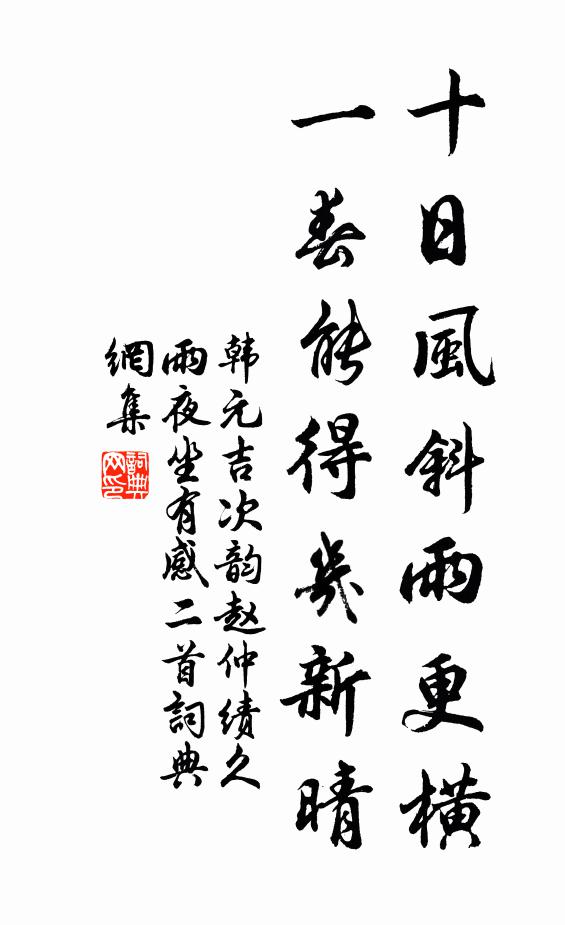 十日風斜雨更橫
一春能得幾新晴
韩元吉次韵赵仲缜久
雨夜坐有感二首詞典
網集
詞典
网印